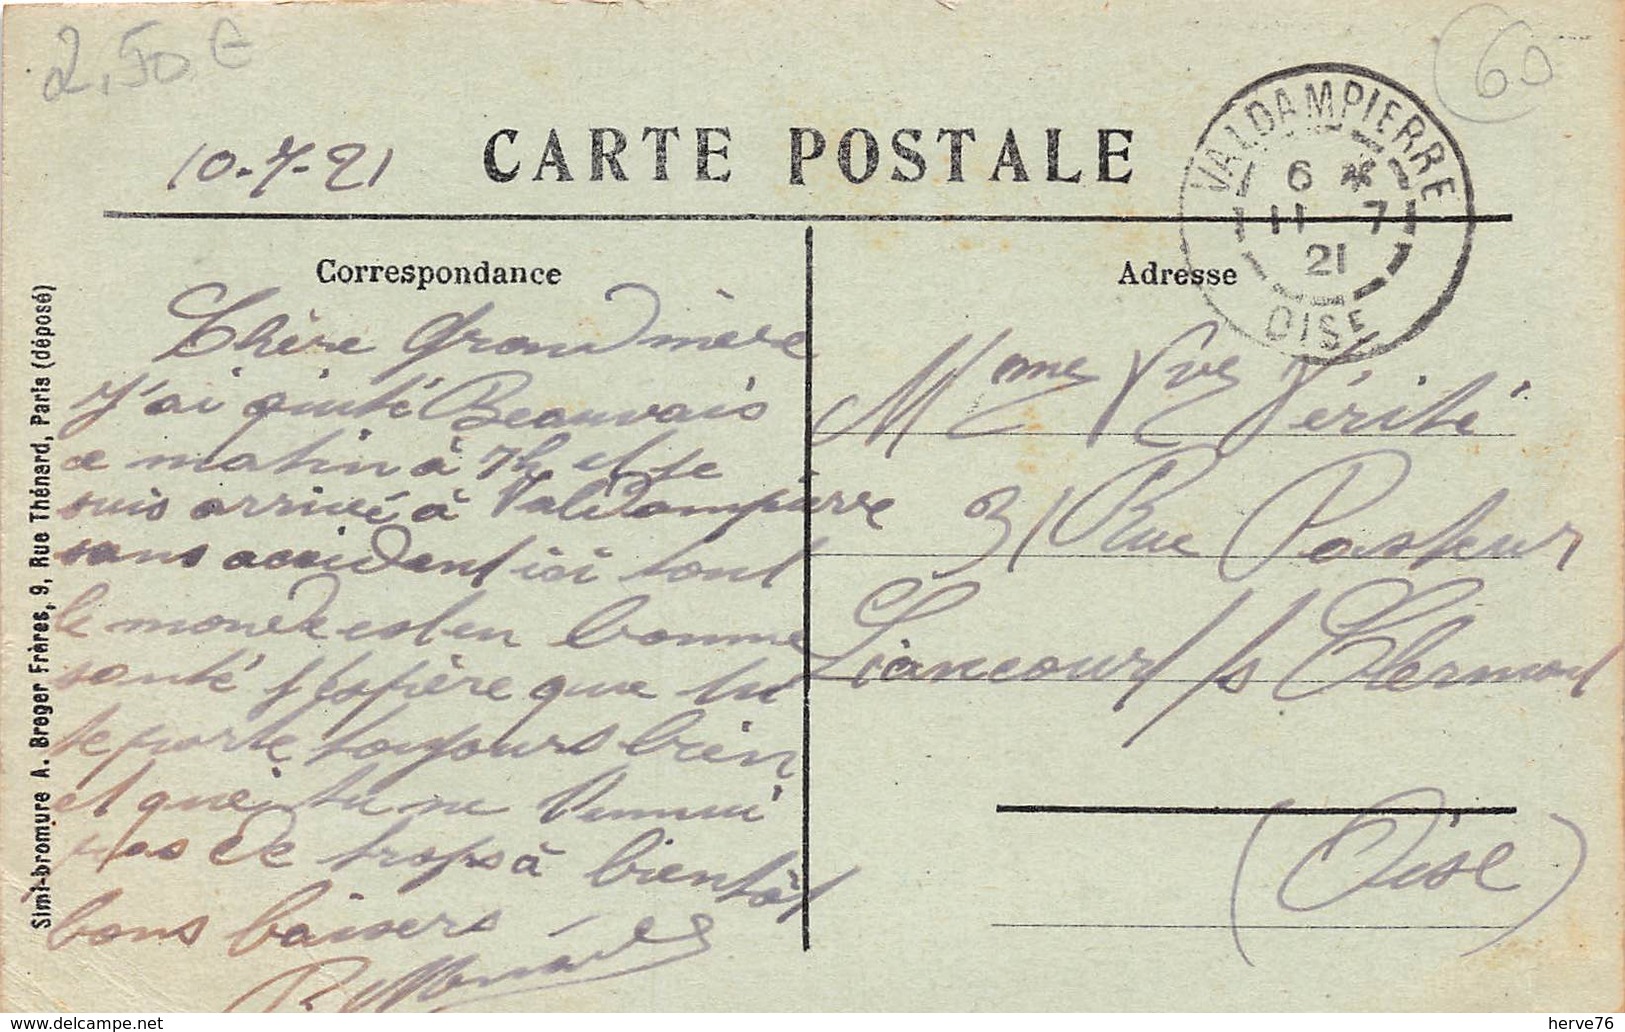 2,50 €
60
10-7-21
CARTE POSTALE
VALDAMPIERRE
6 *
11 7
21
OISE
Correspondance
Adresse
Chère Grand mère
J'ai quité Beauvais
ce matin à 7h et je
suis arrivé à Valdampierre
sans accident ici tout
le monde est en bonne
santé j'espère que tu
te porte toujours bien
et que tu ne t'ennui
pas de trops à bientôt
bons baisers
Mme Vve Vérité
31 Rue Pasteur
Liancourt / s Clermont
(Oise)
Simi-bromure A. Breger Frères, 9, Rue Thénard, Paris (déposé)
www.delcampe.net
herve76